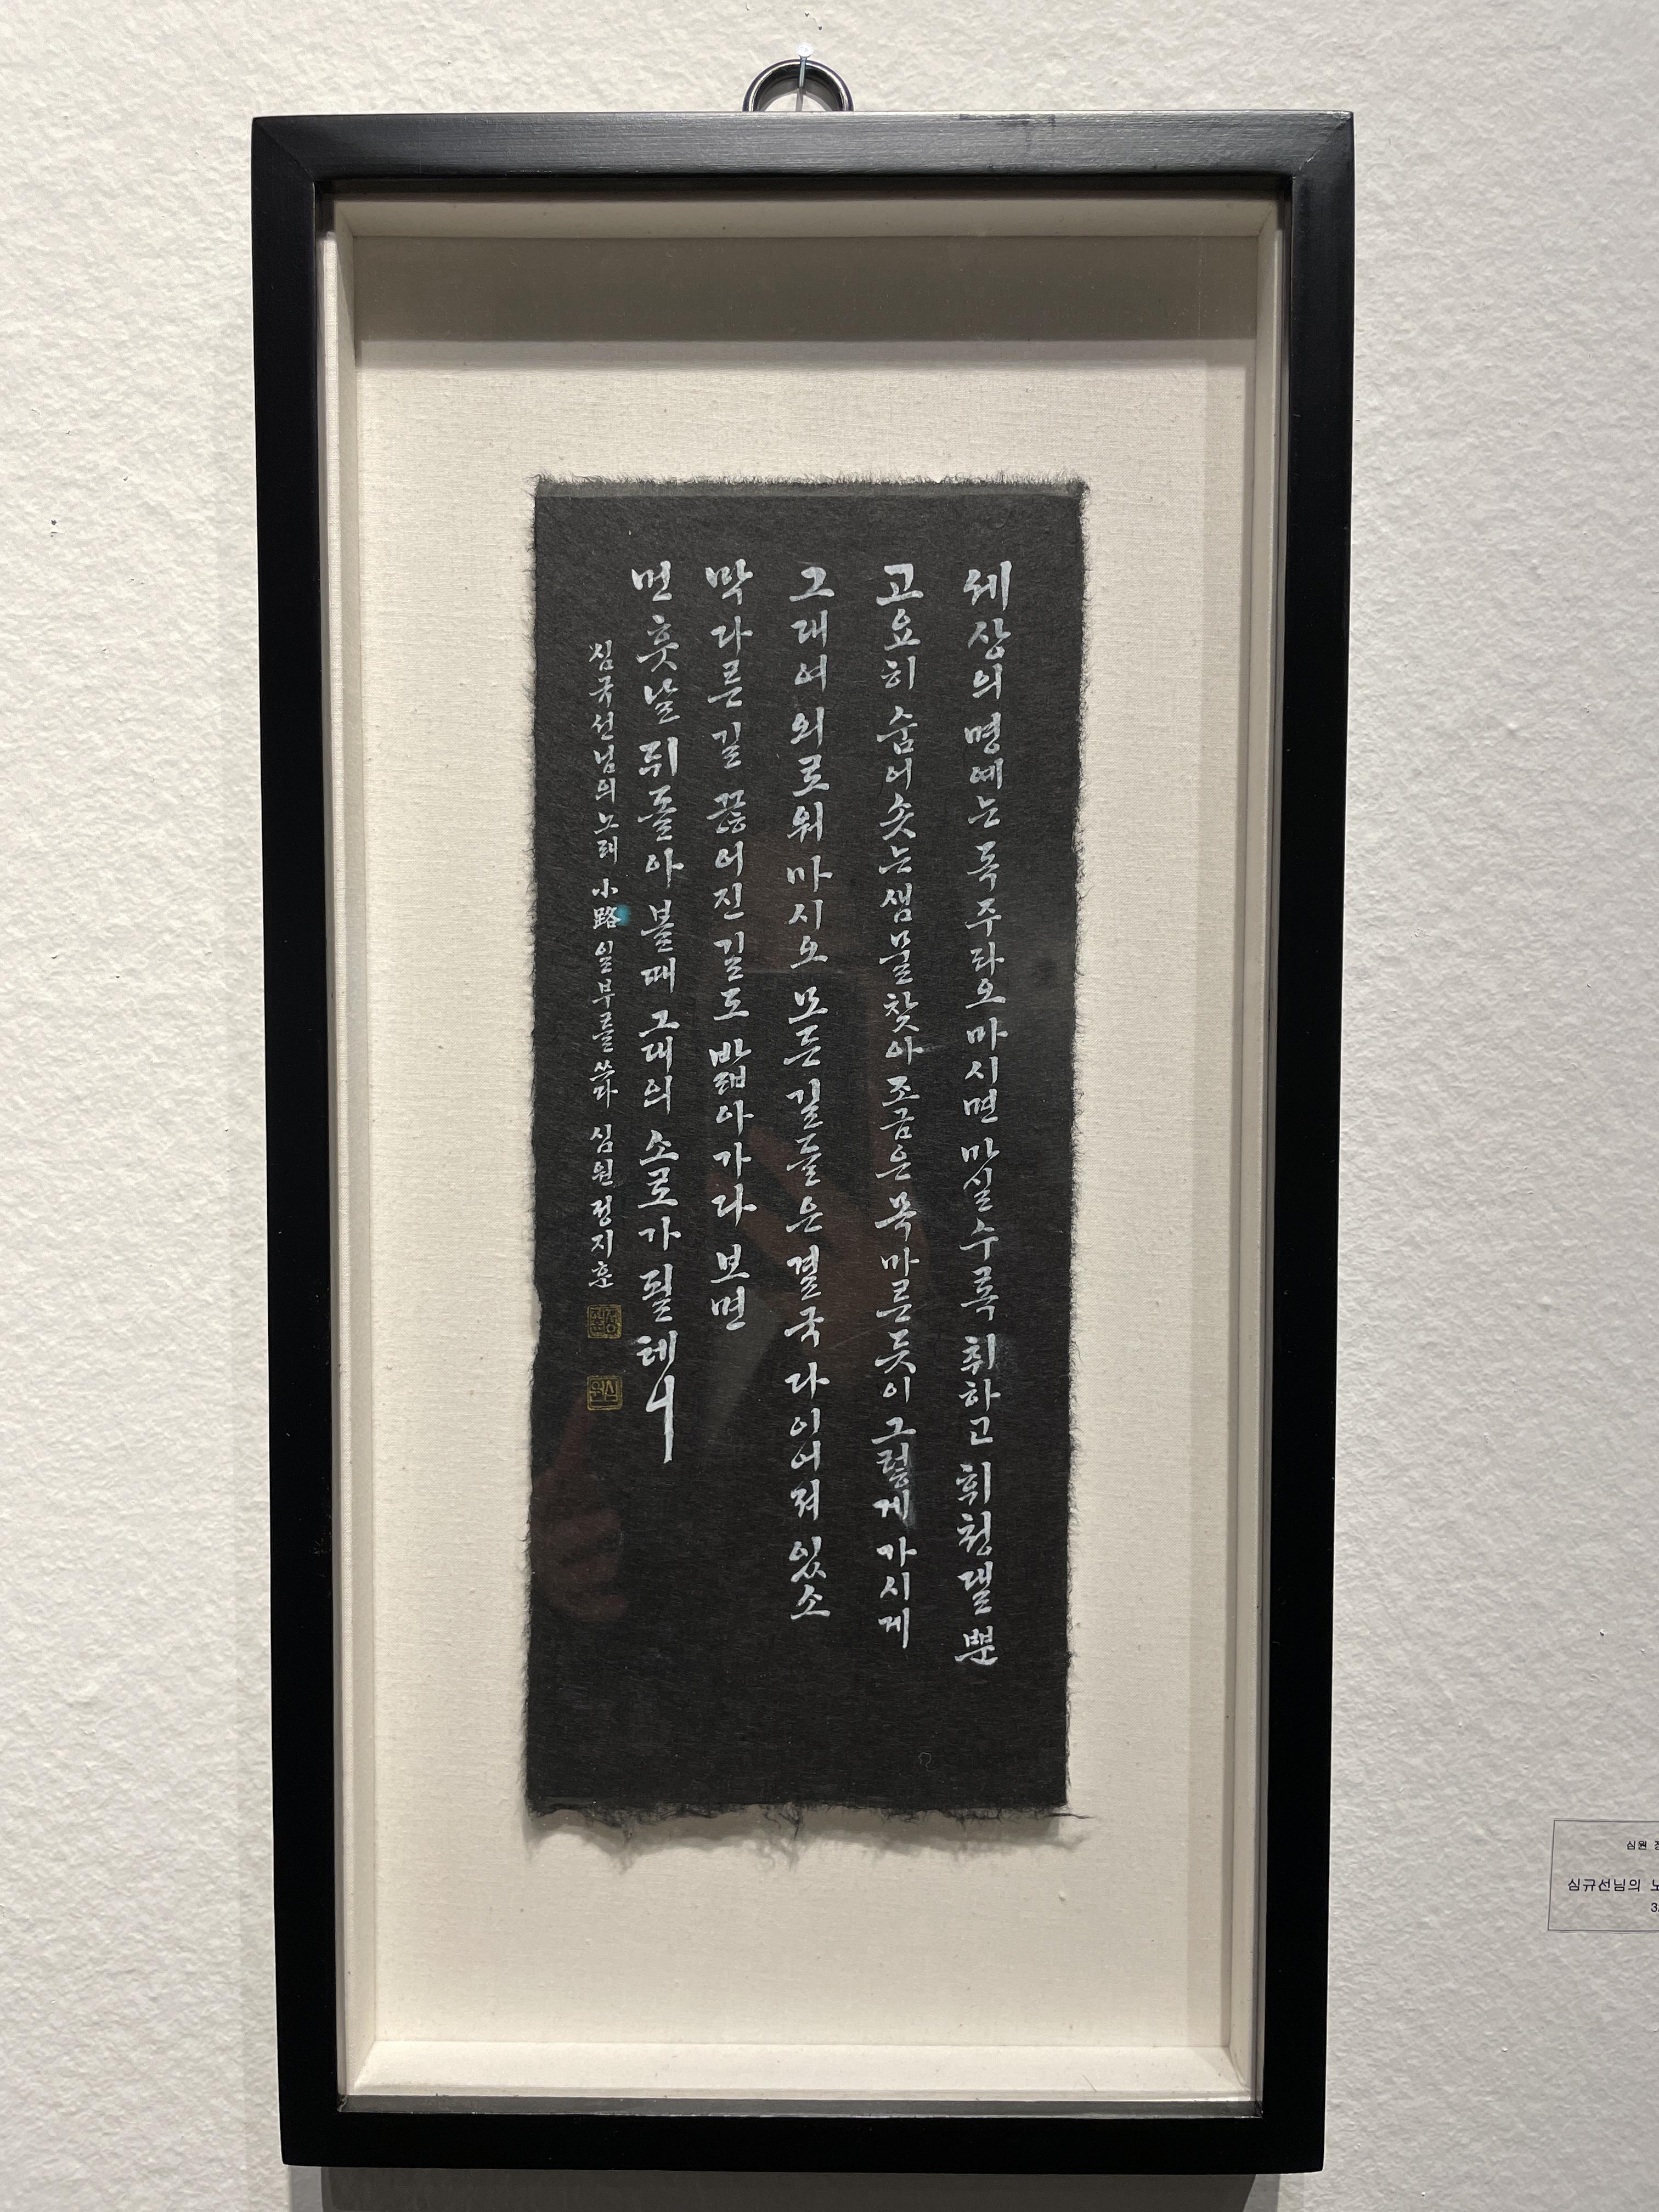 세상의 명예는 독주라오 마시면 마실수록 취하고 휘청댈 뿐
고요히 숨어 솟는 샘물 찾아 조금은 목마른 듯이 그렇게 가시게
그대여 외로워 마시오 모든 길들은 결국 다 이어져 있소
막다른 길 끊어진 길도 밟아가다 보면
먼 훗날 뒤돌아 볼 때 그대의 소로가 될 테니
심규선님의 노래 小路 일부를 쓰다 심원 정지훈
심원
심규선님의